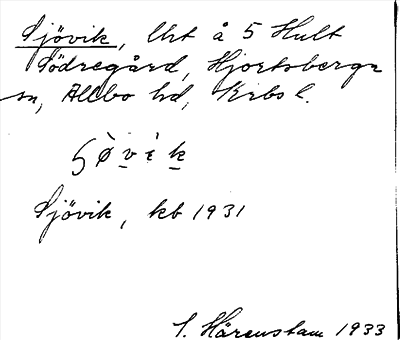 Sjövik, Urt å 5 Hult
Södregård, Hjortsberga
sn, Allbo hd, Krbs l.
Sjövik, kb 1931
S. Härenstam 1933